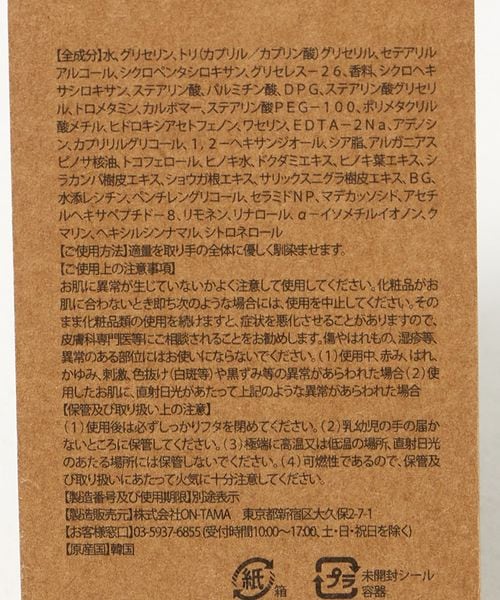 【全成分】水、グリセリン、トリ(カプリル/カプリン酸)グリセリル、セテアリル
アルコール、シクロペンタシロキサン、グリセレス-26、香料、シクロヘキ
サシロキサン、ステアリン酸、パルミチン酸、DPG、ステアリン酸グリセリ
ル、トロメタミン、カルボマー、ステアリン酸PEG-100、ポリメタクリル
酸メチル、ヒドロキシアセトフェノン、ワセリン、EDTA-2Na、アデノシ
ン、カプリリルグリコール、1,2-ヘキサンジオール、シア脂、アルガニアス
ピノサ核油、トコフェロール、ヒノキ水、ドクダミエキス、ヒノキ葉エキス、シ
ラカンバ樹皮エキス、ショウガ根エキス、サリックスニグラ樹皮エキス、BG、
水添レシチン、ペンチレングリコール、セラミドNP、マデカッソシド、アセチ
ルヘキサペプチド-8、リモネン、リナロール、α-イソメチルイオノン、ク
マリン、ヘキシルシンナマル、シトロネロール
【ご使用方法】適量を取り手の全体に優しく馴染ませます。
【ご使用上の注意事項】
お肌に異常が生じていないかよく注意して使用してください。化粧品がお
肌に合わないとき即ち次のような場合には、使用を中止してください。その
まま化粧品類の使用を続けますと、症状を悪化させることがありますので、
皮膚科専門医等にご相談されることをお勧めします。傷やはれもの、湿疹等、
異常のある部位にはお使いにならないでください。(1)使用中、赤み、はれ、
かゆみ、刺激、色抜け(白斑等)や黒ずみ等の異常があらわれた場合(2)使
用したお肌に、直射日光があたって上記のような異常があらわれた場合
【保管及び取り扱い上の注意】
(1)使用後は必ずしっかりフタを閉めてください。(2)乳幼児の手の届か
ないところに保管してください。(3)極端に高温又は低温の場所、直射日光
のあたる場所には保管しないでください。(4)可燃性であるので、保管及
び取り扱いにあたって火気に十分注意してください。
【製造番号及び使用期限】別途表示
【製造販売元】株式会社ON-TAMA 東京都新宿区大久保2-7-1
【お客様窓口】03-5937-6855 (受付時間10:00~17:00、土・日・祝日を除く)
【原産国】韓国
紙 箱 プラ 未開封シール
容器